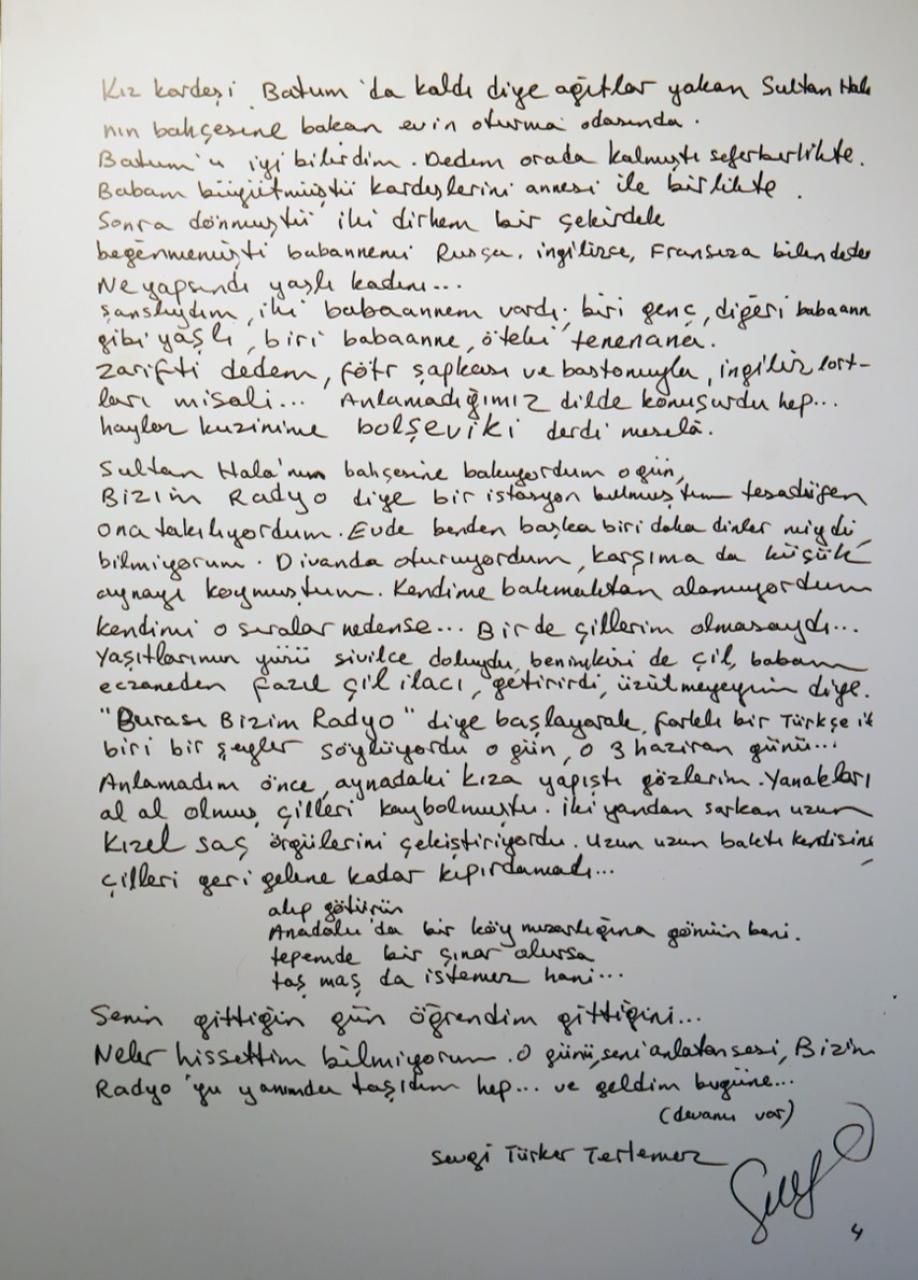 Kız kardeşi Batum'da kaldı diye ağıtlar yakan Sultan Hala
nın bahçesine bakan evin oturma odasında.
Batum'u iyi bilirdim. Dedem orada kalmıştı seferberlikte.
Babam büyütmüştü kardeşlerini annesi ile birlikte.
Sonra dönmüştü iki dirhem bir çekirdek
beğenmemişti babannemi Rusça, ingilizce, Fransızca bilen dedem
Ne yapsındı yaşlı kadını...
şanslıydım, iki babaannem vardı; biri genç, diğeri babaann
gibi yaşlı, biri babaanne, öteki tenenana.
Zarifti dedem, fötr şapkası ve bastonuyla, ingiliz lort-
ları misali... Anlamadığımız dilde konuşurdu hep...
haylaz kuzinime bolşeviki derdi mesela.
Sultan Hala'nın bahçesine bakıyordum o gün,
Bizim Radyo diye bir istasyon bulmuştum tesadüfen
ona takılıyordum. Evde benden başka biri daha dinler miydi
bilmiyorum. Divanda oturuyordum, karşıma da küçük
aynayı koymuştum. Kendime bakmaktan alamıyordum
kendimi o sıralar nedense... Bir de çillerim olmasaydı...
Yaşıtlarımın yüzü sivilce doluydu, benimkisi de çil, babam
eczaneden fazıl çil ilacı, getirirdi, üzülmeyeyim diye.
"Burası Bizim Radyo" diye başlayarak, farklı bir Türkçe ile
biri bir şeyler söylüyordu o gün, o 3 haziran günü...
Anlamadım önce, aynadaki kıza yapıştı gözlerim. Yanakları
al al olmuş, çilleri kaybolmuştu. İki yandan sarkan uzun
kızıl saç örgülerini çekiştiriyordu. Uzun uzun baktı kendisine
çilleri geri gelene kadar kıpırdamadı...
alıp götürün
Anadolu'da bir köy mezarlığına gömün beni.
tepemde bir çınar olursa
taş maş da istemez hani...
Senin gittiğin gün öğrendim gittiğini...
Neler hissettim bilmiyorum. O günü, seni anlatan sesi, Bizim
Radyo'yu yanımda taşıdım hep... ve geldim bugüne...
(devamı var)
Sevgi Türker Terlemez
4